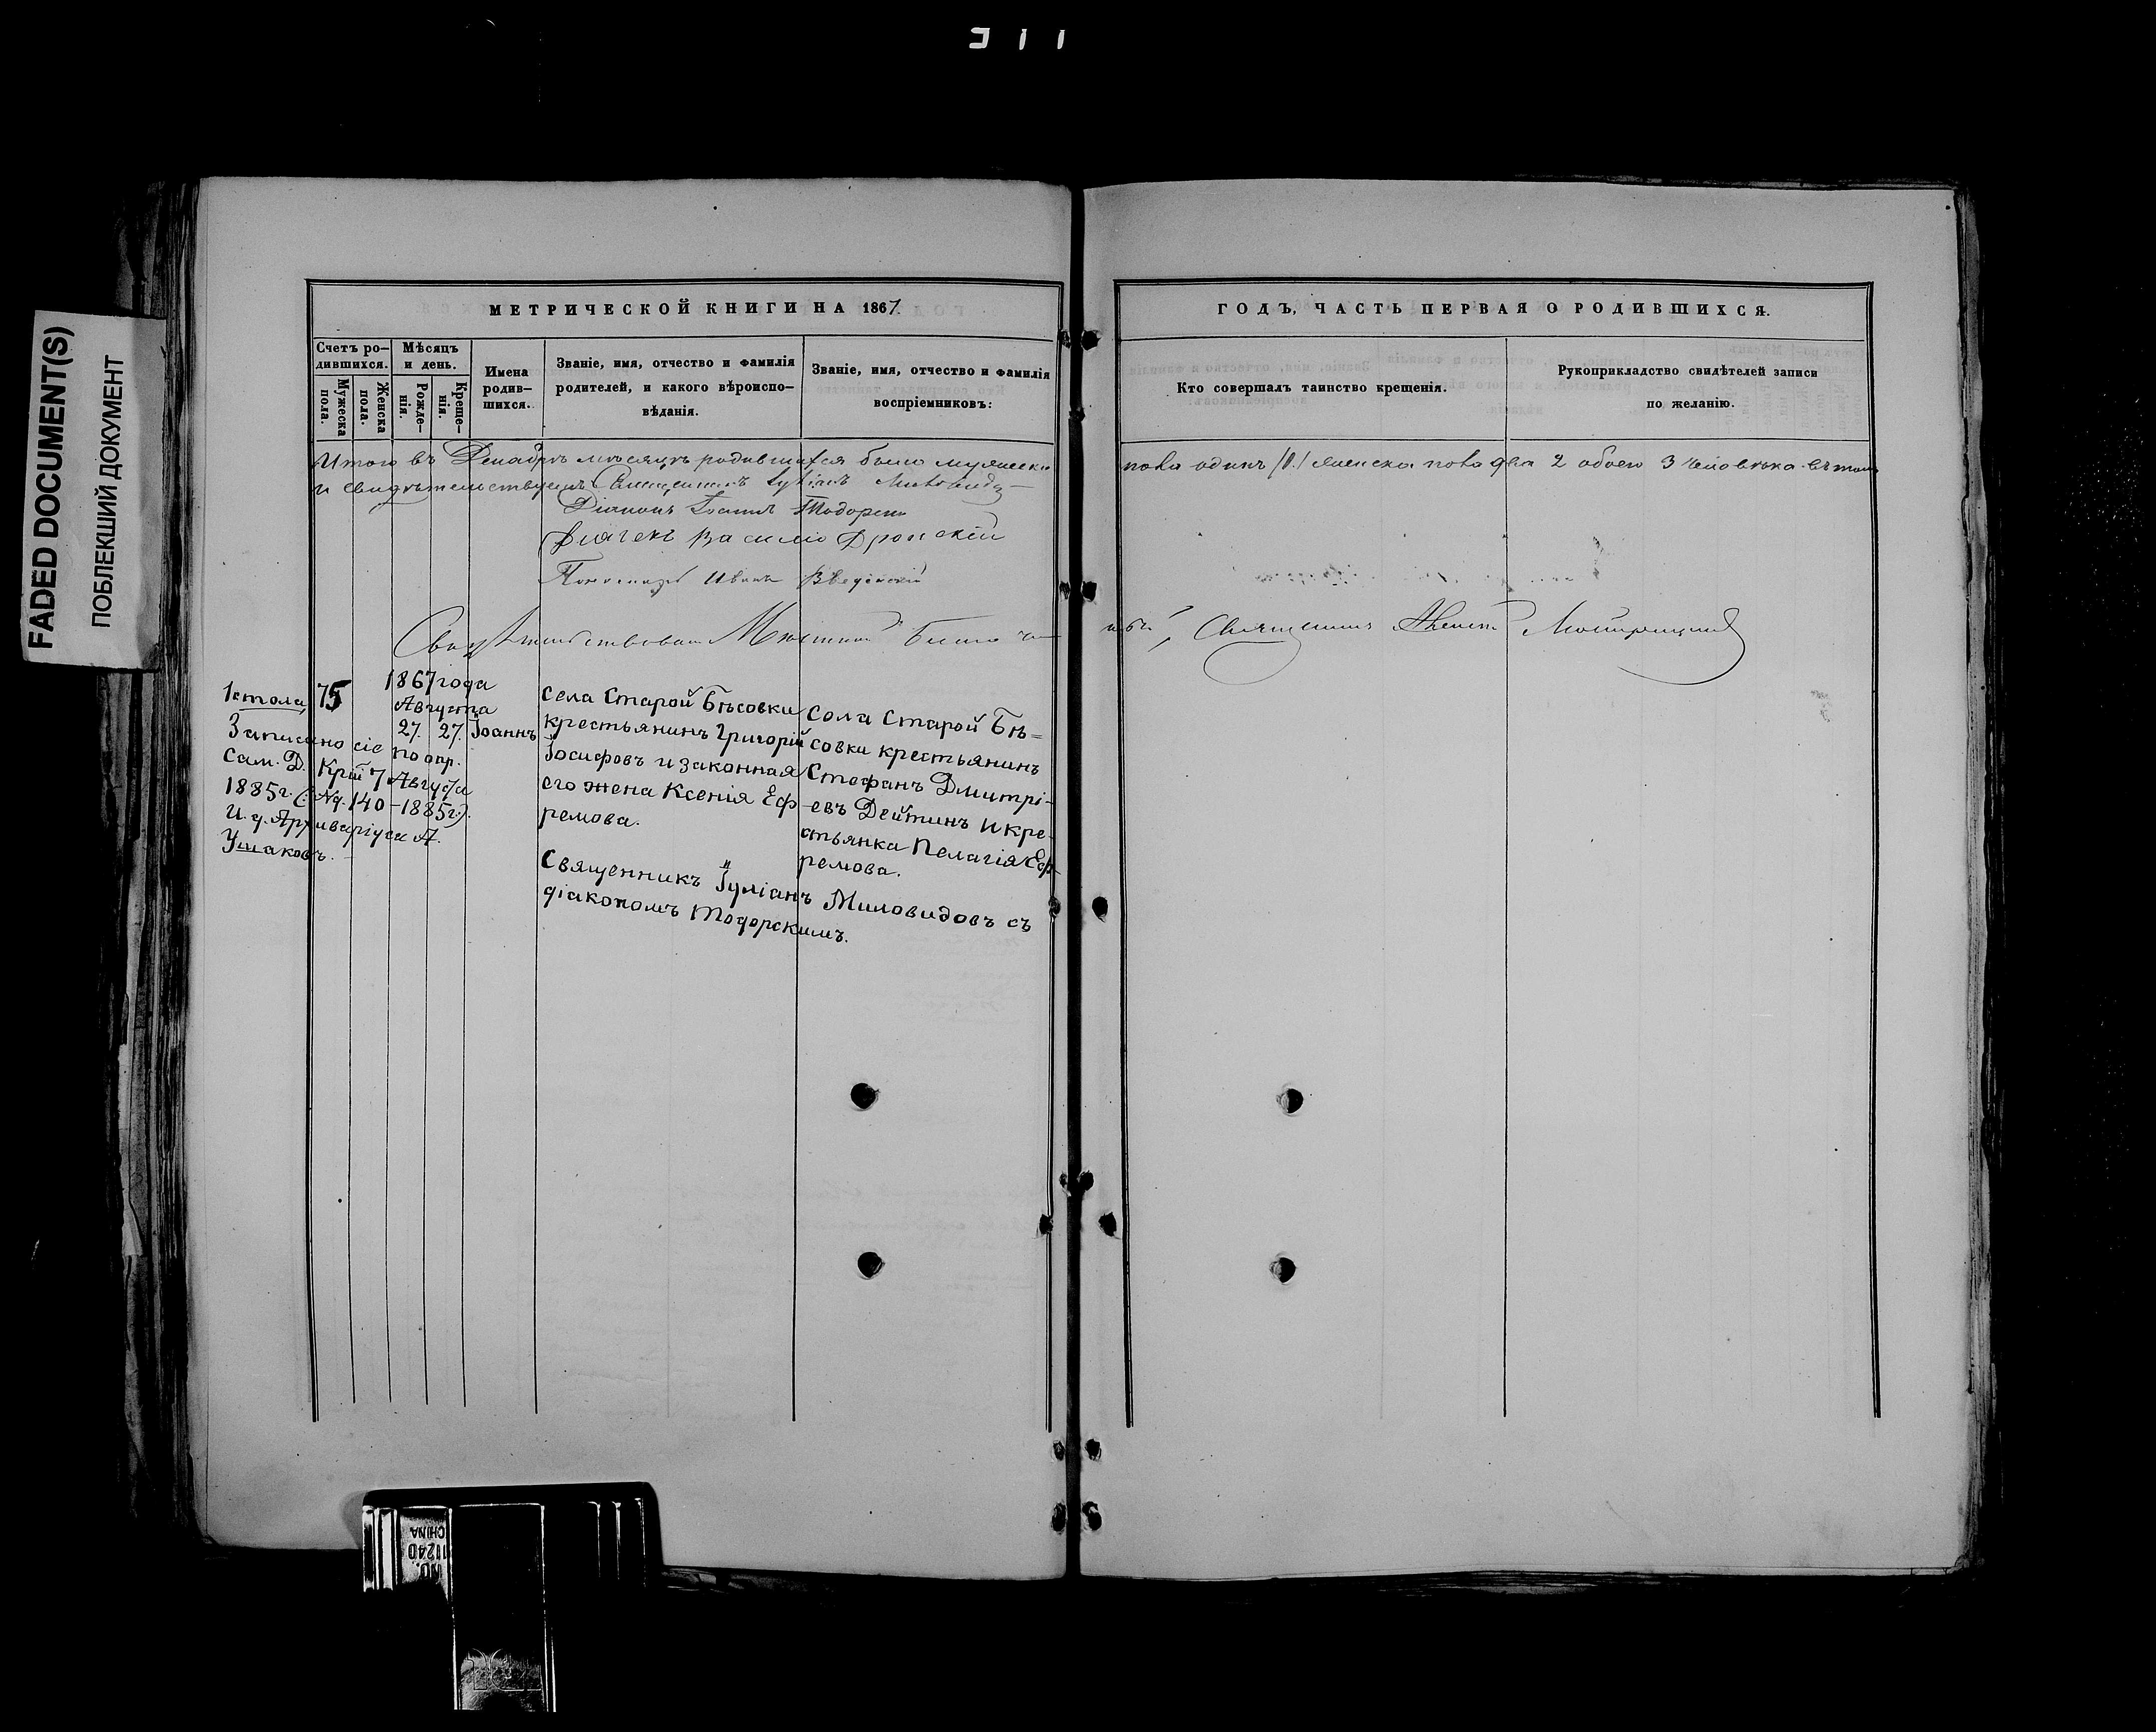 FADED DOCUMENT(S)
ПОБЛЕКШИЙ ДОКУМЕНТ
МЕТРИЧЕСКОЙ КНИГИ НА 1867.
Счетъ родившихся.
Мужеска пола.
Женска пола.
Мѣсяцъ и день.
Рожденія.
Крещенія.
Имена родившихся.
Званіе, имя, отчество и фамилія
родителей, и какого вѣроисповѣданія.
Званіе, имя, отчество и фамилія
воспріемниковъ:
ГОДЪ, ЧАСТЬ ПЕРВАЯ О РОДИВШИХСЯ.
Кто совершалъ таинство крещенія.
Рукоприкладство свидѣтелей записи
по желанію.
Итого въ Декабрѣ мѣсяцѣ родившихся было мужеска пола одинъ /1./ женска пола два 2 обоего 3 человѣка въ томъ
и свидѣтельствуемъ Священникъ Іуліанъ Миловидовъ
Діаконъ Іоаннъ Тодорскій
Дьячекъ Василій Дронскій
Пономарь Иванъ Введенскій
Свидѣтельствовалъ Священникъ
1 стола, 75
Записано сіе по опр.
Сам. Д. Крій 7 Августа
1885 г. (: № 140-1885 г.:).
И. д. Архиваріуса А.
Ушаковъ.
1867 года
Августа
27. 27. Іоаннъ
села Старой Бѣсовки
крестьянинъ Григорій
Іосифовъ и законная
его жена Ксенія Еф
ремова.
Села Старой Бѣ=
совки крестьянинъ
Стефанъ Дмитрі-
евъ Дейтинъ и кре-
стьянка Пелагія Еф-
ремова.
Священникъ Іуліанъ Миловидовъ съ
діакономъ Тодорскимъ.
NO. 11240
CHINA